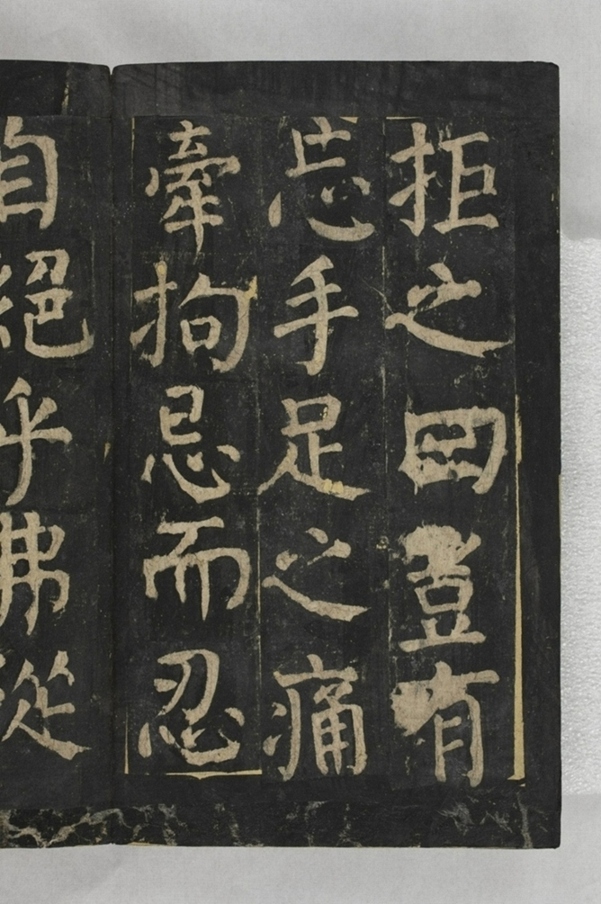 拒之曰豈有
忘手足之痛
牽拘忌而忍
自絕乎弗從